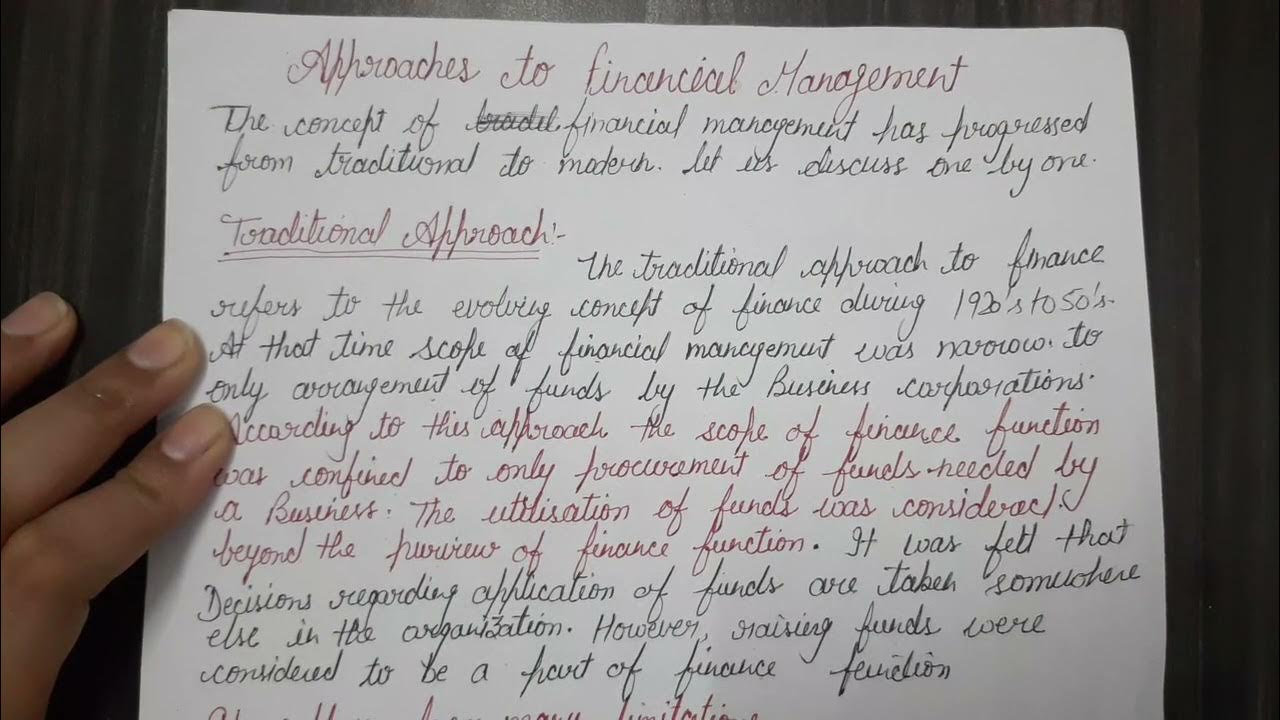 Approaches to Financial Management
The concept of financial management has progressed
from traditional to modern. Let us discuss one by one.
Traditional Approach:-
The traditional approach to finance
refers to the evolving concept of finance during 1920's to 50's.
At that time scope of financial management was narrow. to
only arrangement of funds by the Business corporations.
According to this approach the scope of finance function
was confined to only procurement of funds needed by
a Business. The utilisation of funds was considered
beyond the purview of finance function. It was felt that
Decisions regarding application of funds are taken somewhere
else in the organization. However, raising funds were
considered to be a part of finance function
many limitations